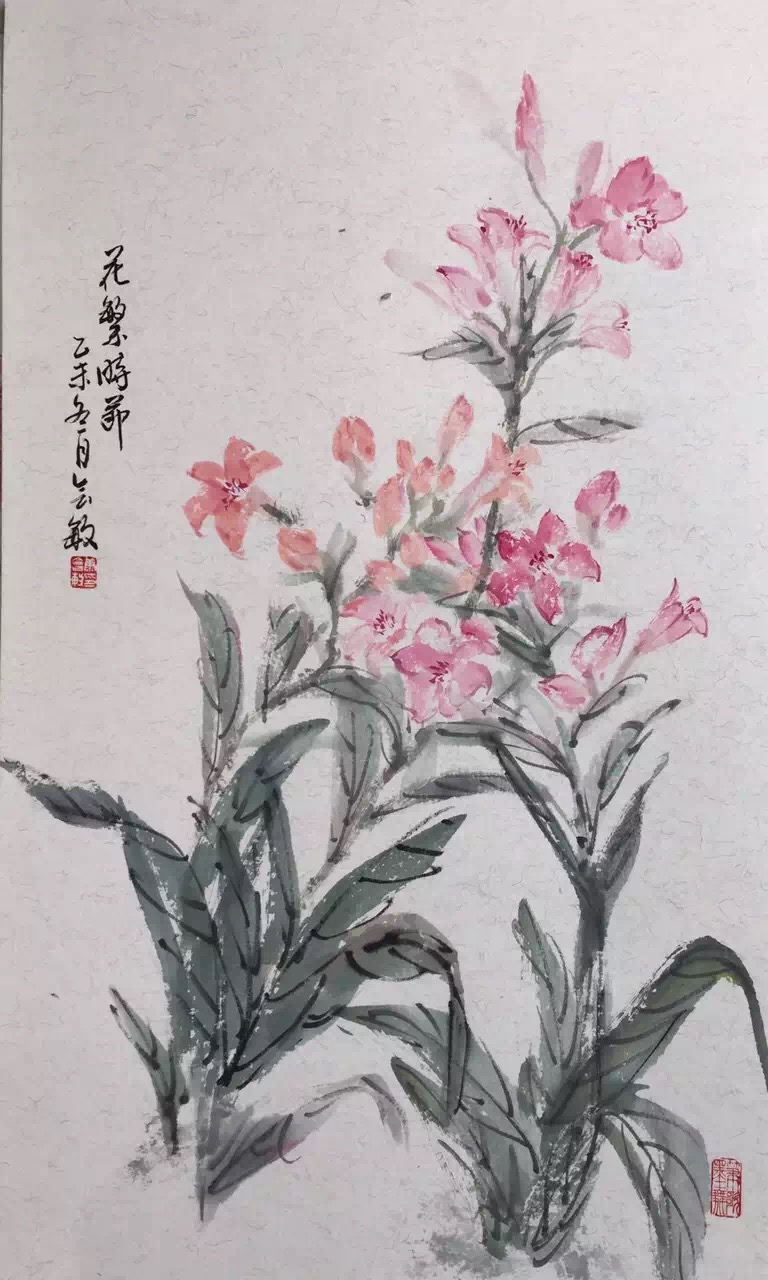 花繁時節
乙未冬月会敏